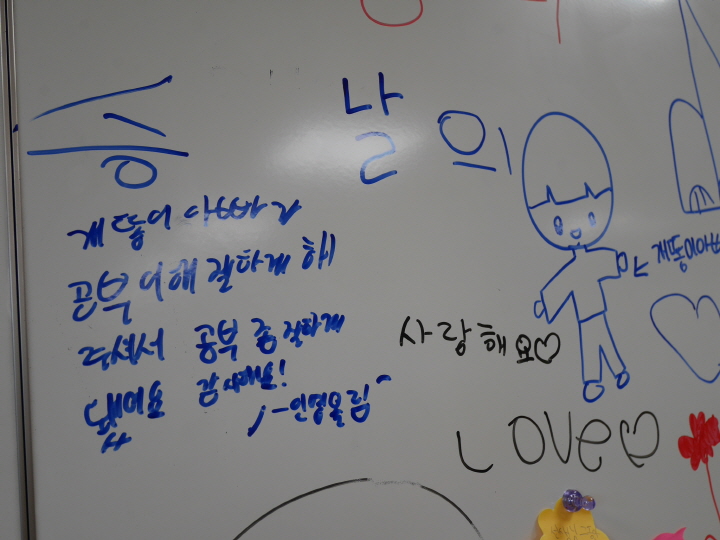 승 날 의
개똥이 아빠가
공부 이해 잘하게 해
주셔서 공부 좀 잘하게
됐어요 감사해요!
-인영올림-
개똥이아빠
사랑해요♡
LOVe♡